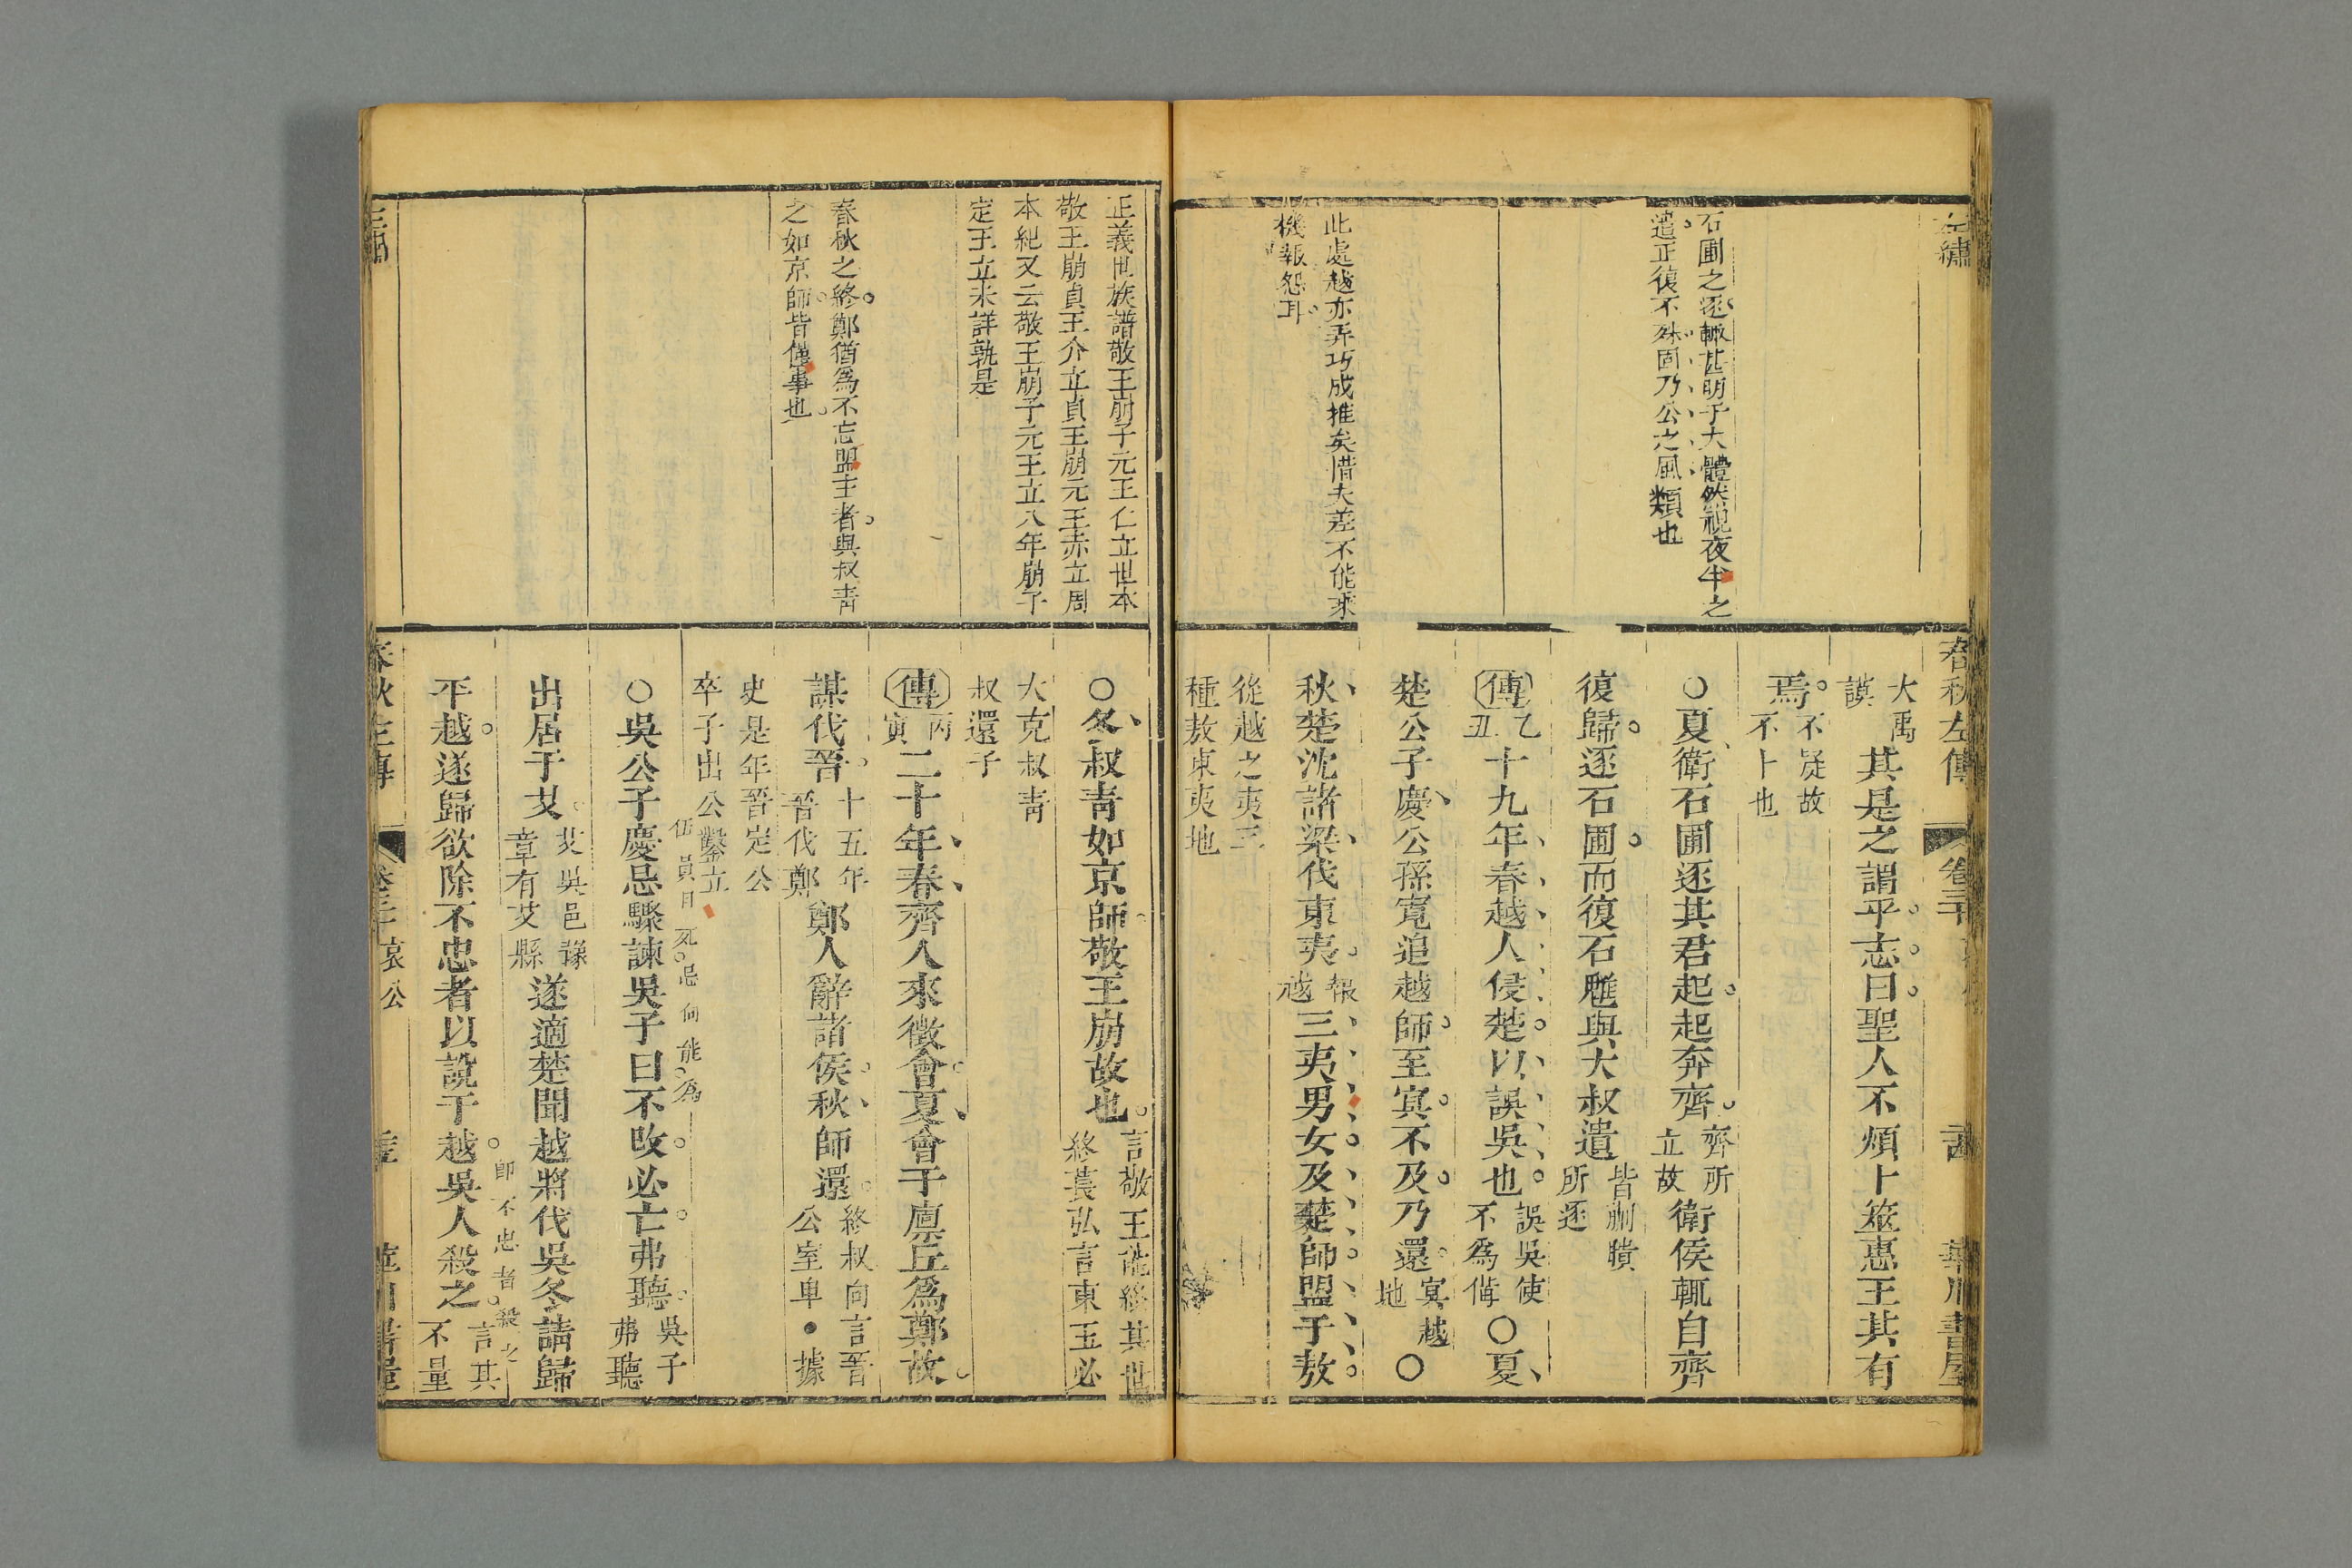 左繡
石圃之逐輙甚明于大體然視夜半之
遣正復不殊固乃公之風類也
此處越亦弄巧成推矣惜夫差不能乘
機報怨耳
春秋左傳
卷三十
華川書屋
大禹
謨
其是之謂乎志曰聖人不煩卜筮惠王其有
焉
不疑故
不卜也
○夏衛石圃逐其君起起奔齊
齊所
立故
衛侯輒自齊
復歸逐石圃而復石魋與大叔遺
皆蒯聵
所逐
傳
乙
丑
十九年春越人侵楚以誤吳也
誤吳使
不為備
○夏
楚公子慶公孫寬追越師至冥不及乃還
冥越
地
○
秋楚沈諸梁伐東夷
報
越
三夷男女及楚師盟于敖
從越之夷三
種敖東夷地
正義世族譜敬王崩子元王仁立世本
敬王崩貞王介立貞王崩元王赤立周
本紀又云敬王崩子元王立八年崩子
定王立未詳孰是
春秋之終鄭猶為不忘盟主者與叔青
之如京師皆僅事也
○冬叔青如京師敬王崩故也
言敬王能終其世
終萇弘言東王必
大克叔青
叔還子
傳
丙
寅
二十年春齊人來徵會夏會于廩丘為鄭故
謀伐晉
十五年
晉伐鄭
鄭人辭諸侯秋師還
終叔向言晉
公室卑●據
史是年晉定公
卒子出公鑿立
○吳公子慶忌驟諫吳子曰不改必亡弗聽
吳子
弗聽
出居于艾
艾吳邑豫
章有艾縣
遂適楚聞越將伐吳冬請歸
即不忠者殺之
平越遂歸欲除不忠者以說于越吳人殺之
言其
不量
春秋左傳
哀公